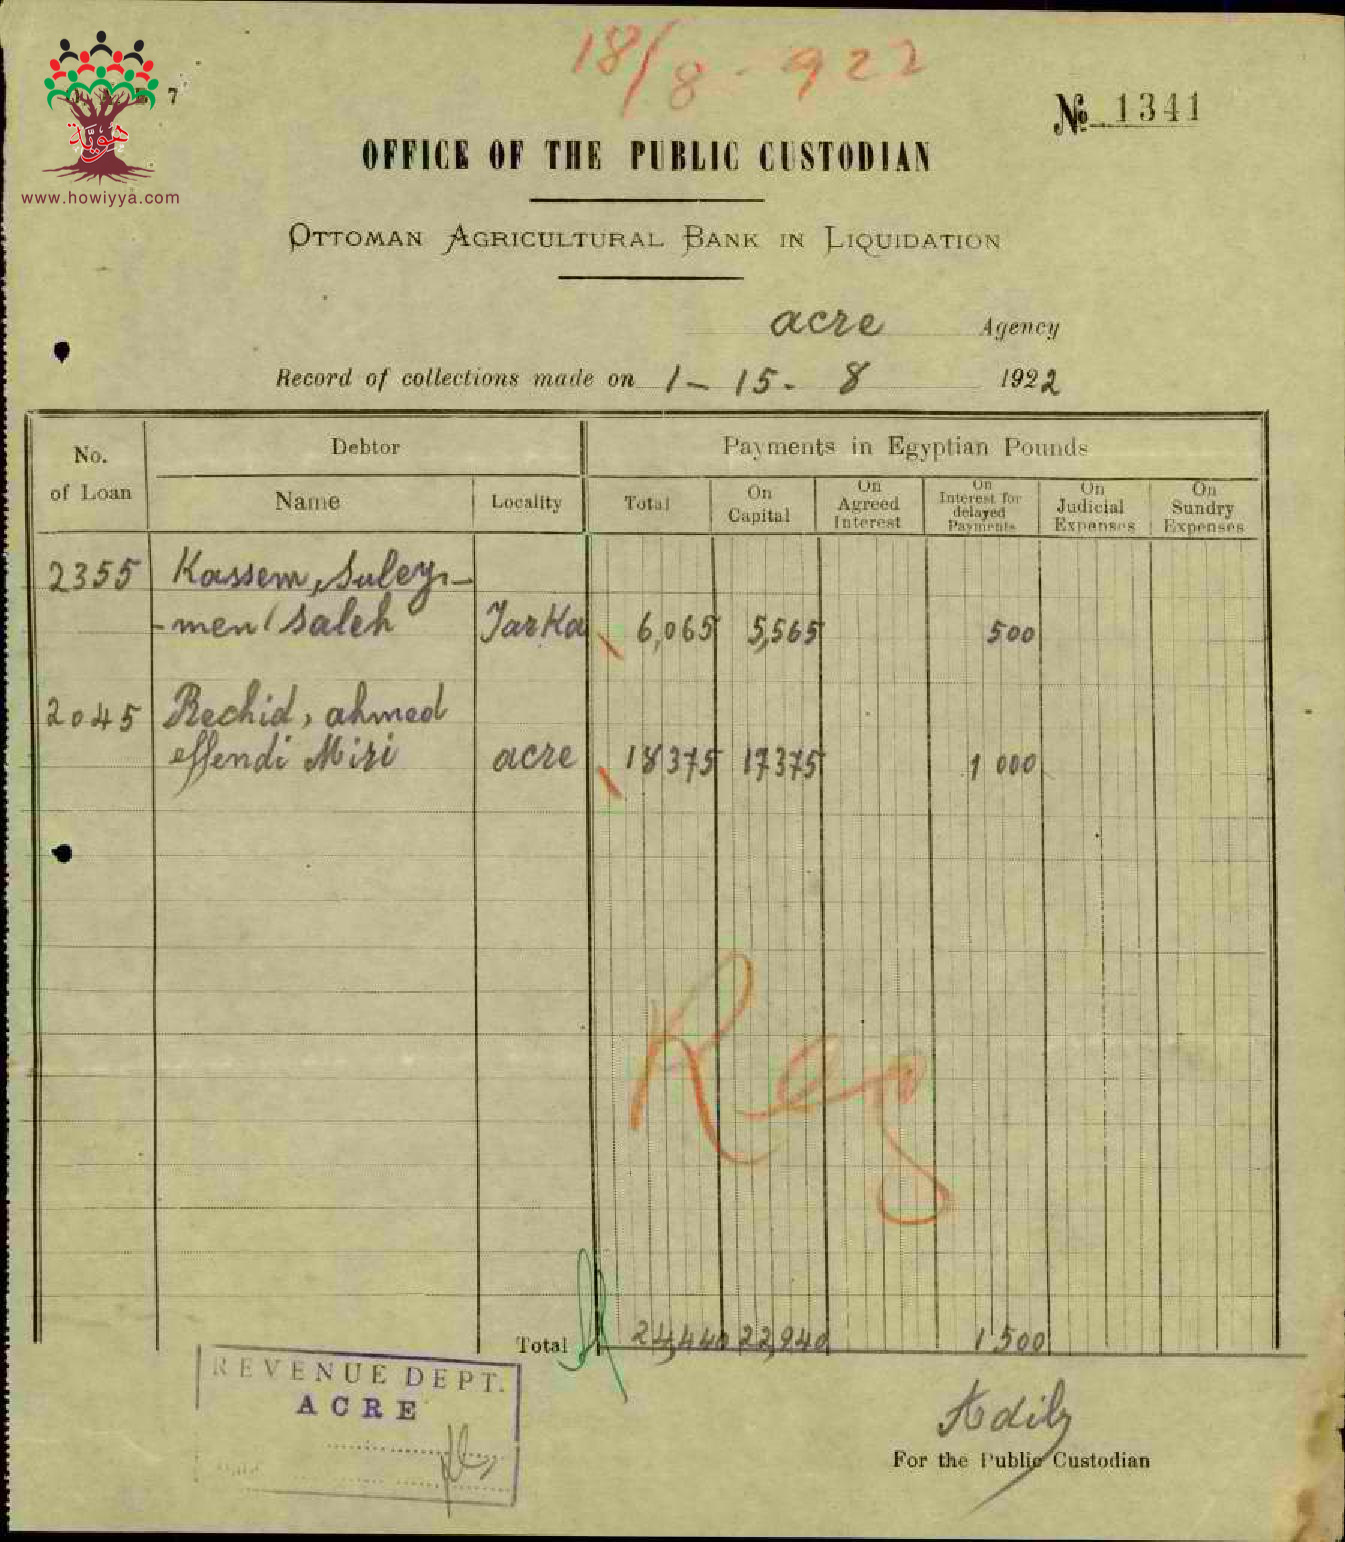 18/8-922
7
هوية
www.howiyya.com
№ 1341
OFFICE OF THE PUBLIC CUSTODIAN
OTTOMAN AGRICULTURAL BANK IN LIQUIDATION
acre Agency
Record of collections made on 1-15-8 1922
No. of Loan
Debtor
Payments in Egyptian Pounds
Name
Locality
Total
On Capital
On Agreed Interest
On Interest for delayed Payments
On Judicial Expenses
On Sundry Expenses
2355 Kassem, Suley-
-men Saleh Tarka 6,065 5,565 500
2045 Rechid, ahmed
effendi Miri acre 18375 17375 1 000
Reg
Total 24,440 22,940 1 500
REVENUE DEPT.
ACRE
For the Public Custodian